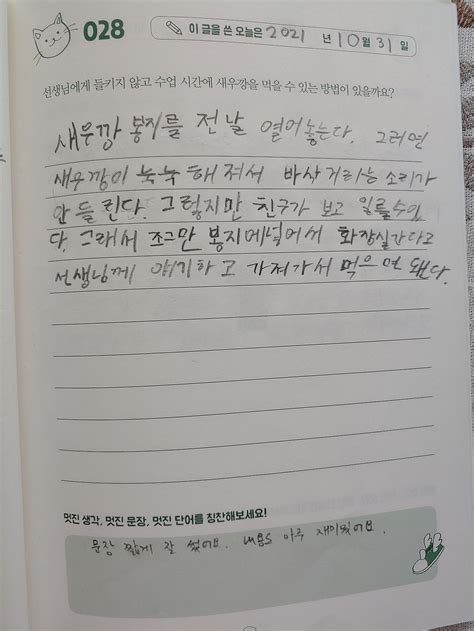 028
이 글을 쓴 오늘은 2021 년 10 월 31 일
선생님에게 들키지 않고 수업 시간에 새우깡을 먹을 수 있는 방법이 있을까요?
새우깡 봉지를 전날 열어놓는다. 그러면
새우깡이 눅눅해져서 바사거리는 소리가
안들린다. 그렇지만 친구가 보고 일를수있
다. 그래서 조그만 봉지에넣어서 화장실간다고
선생님께 얘기하고 가져가서 먹으면 됀다.
멋진 생각, 멋진 문장, 멋진 단어를 칭찬해보세요!
문장 짧게 잘 썼어요. 내용도 아주 재미있어요.